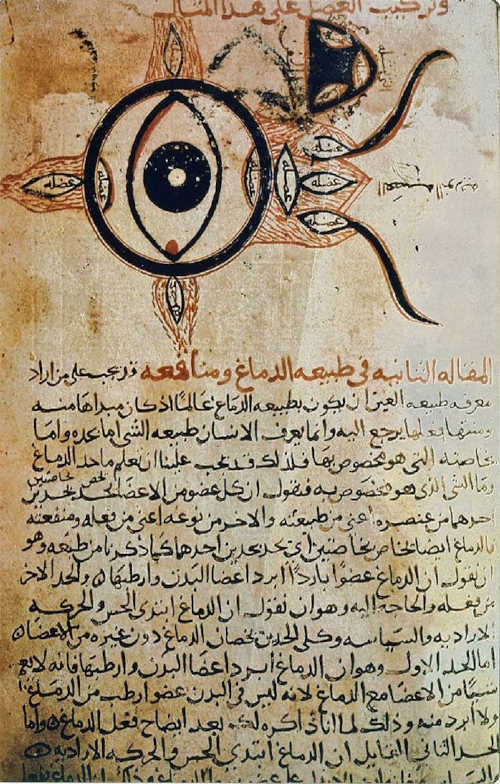 وتركيب العضل على هذا المثال
عضله
عضله
عضله
عضله
عضله
عضله
عضله
العصبه النوريه
المقاله الثانيه في طبيعه الدماغ ومنافعه قد يجب على من اراد
معرفه طبيعه العين ان يكون بطبيعه الدماغ عالما اذ كان مبداها منه
يرجع اليه وانما يعرف الانسان طبيعه الشي اما بحده واما
بخاصته التي هو مخصوص بها فلذلك قد يجب علينا ان نعلم ما حد الدماغ
وما الشي الذي هو مخصوص به فنقول ان كل عضو من الاعضا يحد بحدين
احدهما من عنصره اعني من طبيعته والاخر من نوعه اعني من فعله ومنفعته
فالدماغ ايضا بحدين احدهما كما ذكرنا من طبعه وهو
ان نقول ان الدماغ عضوا باردا ابرد اعضا البدن وارطبها والحد الاخر
من فعله والحاجه اليه وهو ان نقول ان الدماغ ابتدى الحس والحركه
الاراديه والسياسه وكلى الحدين يخصان الدماغ دون غيره من الاعضا
اما الحد الاول وهو ان الدماغ ابرد اعضا البدن وارطبها فانه لا يعم
شيئا من الاعضا مع الدماغ لانه ليس في البدن عضو ارطب من الدماغ
ولا ابرد منه وذلك لما انا ذاكره لك بعد ايضاح فعل الدماغ واما
الحد الثاني القايل ان الدماغ ابتدى الحس والحركه الاراديه